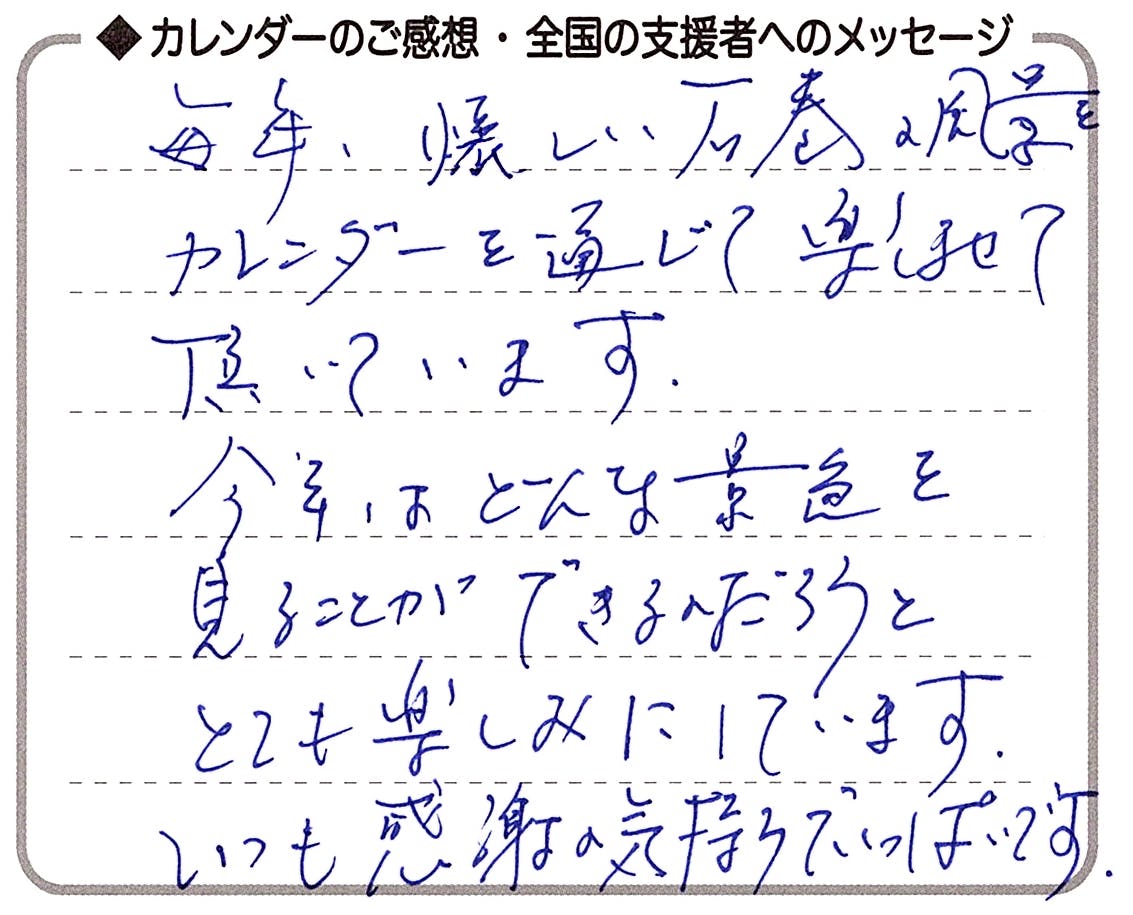 ◆カレンダーのご感想・全国の支援者へのメッセージ
毎年、懐しい石巻の風景を
カレンダーを通じて楽しませて
頂いています.
今年はどんな景色を
見ることができるのだろうと
とても楽しみにしています.
いつも感謝の気持ちでいっぱいです.